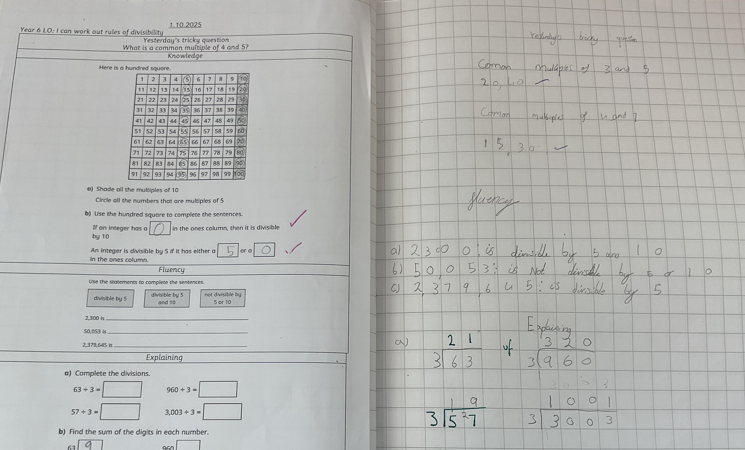 1.10.2025
Year 6 LO: I can work out rules of divisibility
Yesterday's tricky question
What is a common multiple of 4 and 5?
Knowledge
Here is a hundred square.
1 2 3 4 5 6 7 8 9 10
11 12 13 14 15 16 17 18 19 20
21 22 23 24 25 26 27 28 29 30
31 32 33 34 35 36 37 38 39 40
41 42 43 44 45 46 47 48 49 50
51 52 53 54 55 56 57 58 59 60
61 62 63 64 65 66 67 68 69 70
71 72 73 74 75 76 77 78 79 80
81 82 83 84 85 86 87 88 89 90
91 92 93 94 95 96 97 98 99 100
a) Shade all the multiples of 10
Circle all the numbers that are multiples of 5
b) Use the hundred square to complete the sentences.
If an integer has a 0 in the ones column, then it is divisible
by 10
An integer is divisible by 5 if it has either a 5 or a 0
in the ones column.
Fluency
Use the statements to complete the sentences.
divisible by 5
divisible by 5 and 10
not divisible by 5 or 10
2,300 is
50,053 is
2,379,645 is
Explaining
a) Complete the divisions.
63 ÷ 3 = 960 ÷ 3 =
57 ÷ 3 = 3,003 ÷ 3 =
b) Find the sum of the digits in each number.
63 9 960
Yesterday's tricky question
Common multiples of 3 and 5
20, 40
Common multiples of 4 and
15, 30
fluency
a) 2300: is divisible by 5 and 10
b) 50,053: is Not divisible by 5 or 10
c) 2,379,645: is divisible by 5
Explaining
a) 21 320
3 63 3 960
19 1001
3 57 3 3003